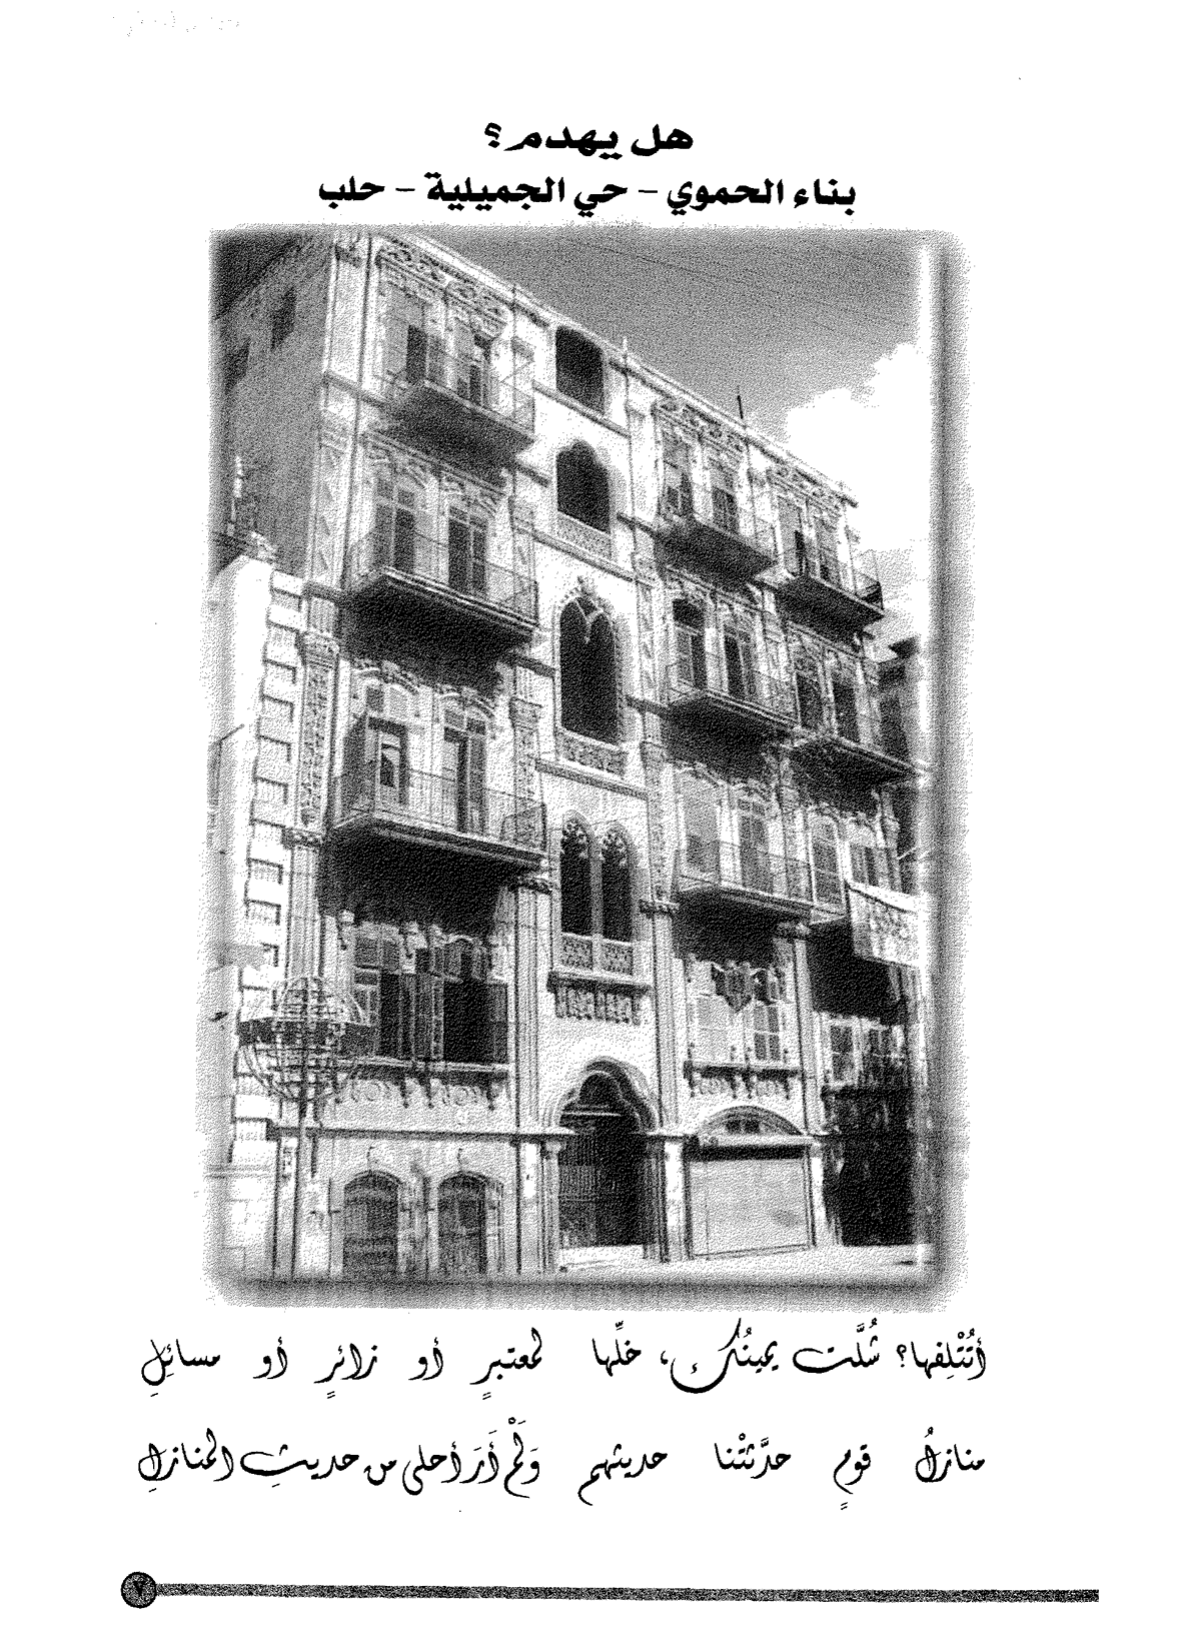 هل يهدم؟
بناء الحموي – حي الجميلية – حلب
أتُتْلِفها؟ شُلَّت يمينُك، خلِّها لمعتبرٍ أو زائرٍ أو مسائِلِ
منازلُ قومٍ حدَّثتْنا حديثهم وَلَمْ أَرَ أحلى من حديثِ المنازلِ
٢